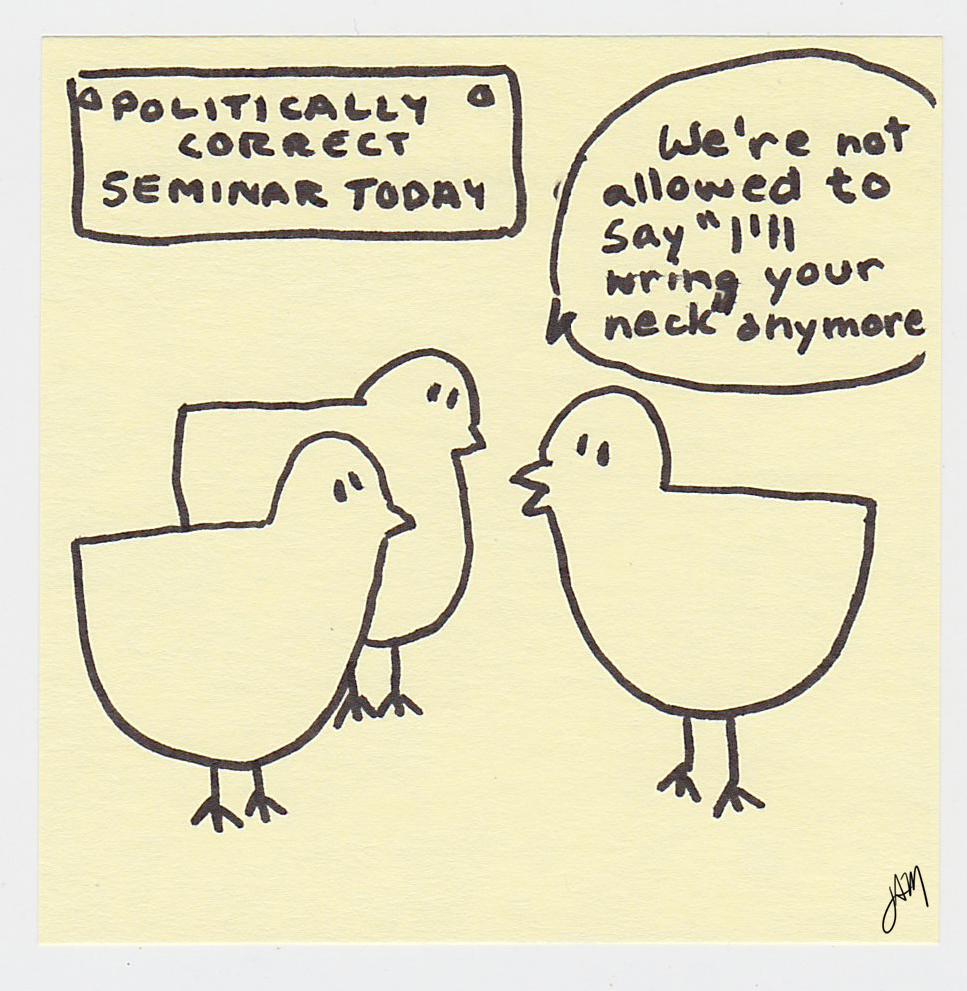 POLITICALLY
CORRECT
SEMINAR TODAY
We're not
allowed to
say "I'll
wring your
neck" anymore
JAM